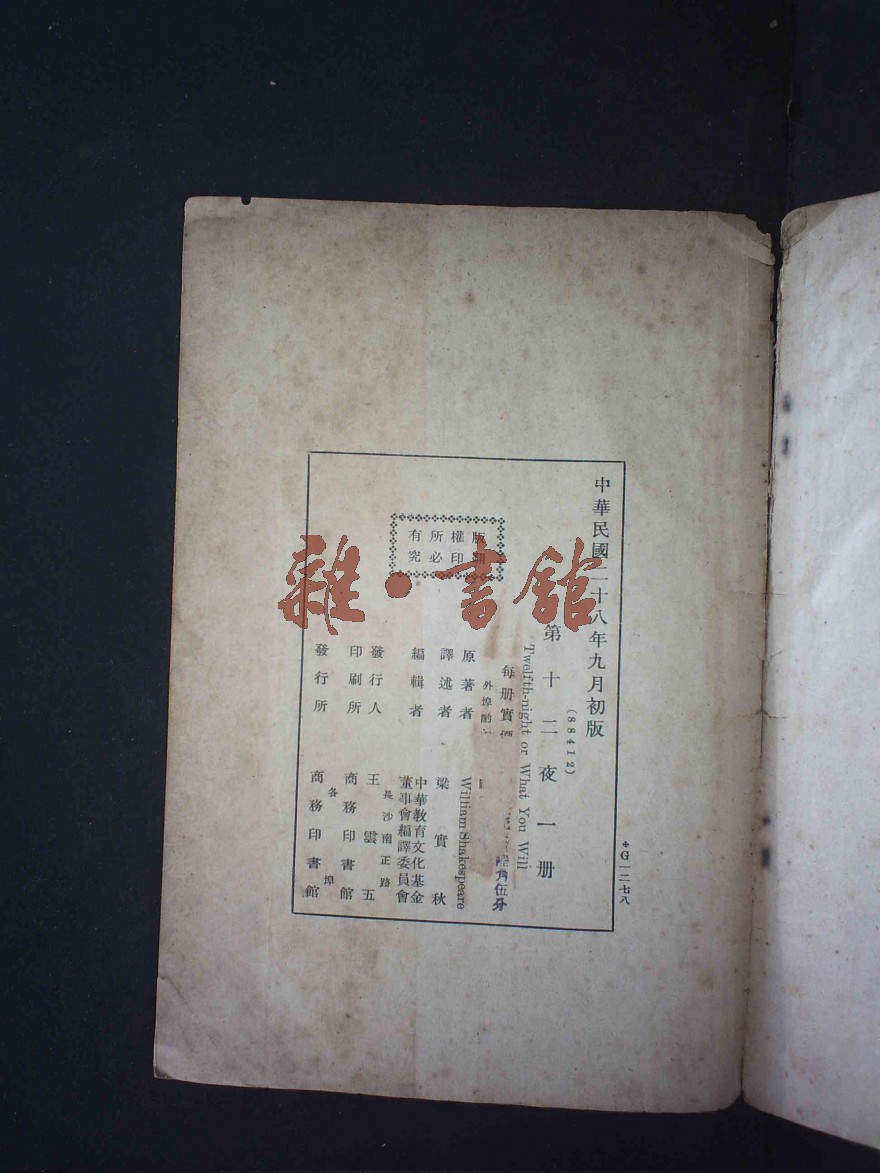 中華民國二十八年九月初版
(88412)
第十二夜一册
Twelfth-night or What You Will
每册實價
陸角伍分
外埠酌
原著者 William Shakespeare
譯述者 梁實秋
編輯者 中華教育文化基金董事會編譯委員會
發行人 王雲五
長沙南正路
印刷所 商務印書館
發行所 商務印書館
各埠
版權所有
翻印必究
G一二七八
雜·書館